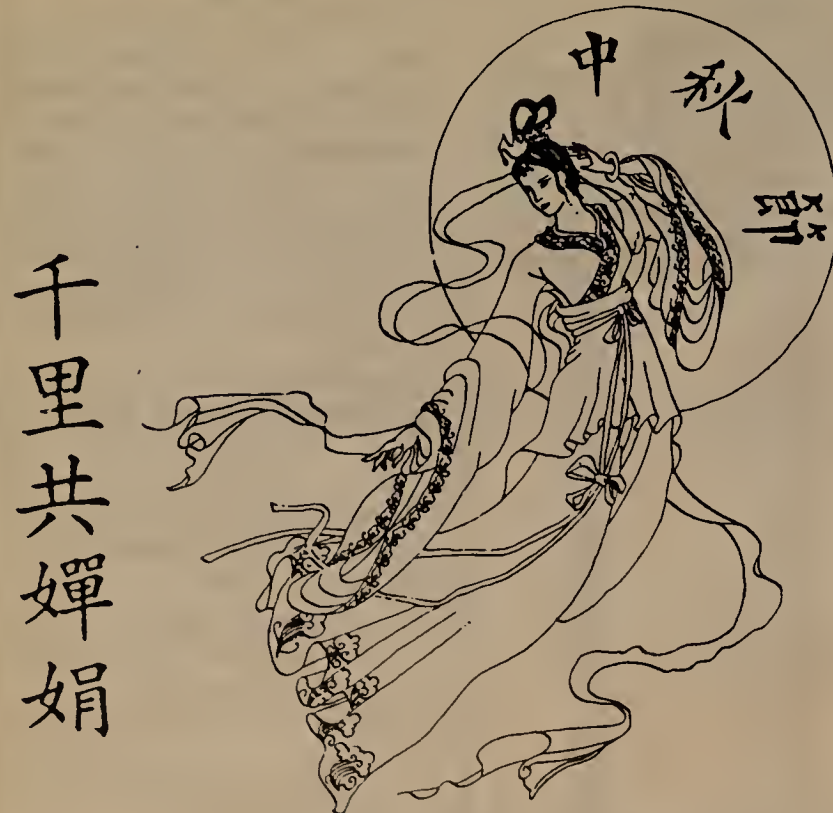 中秋節
千里共嬋娟